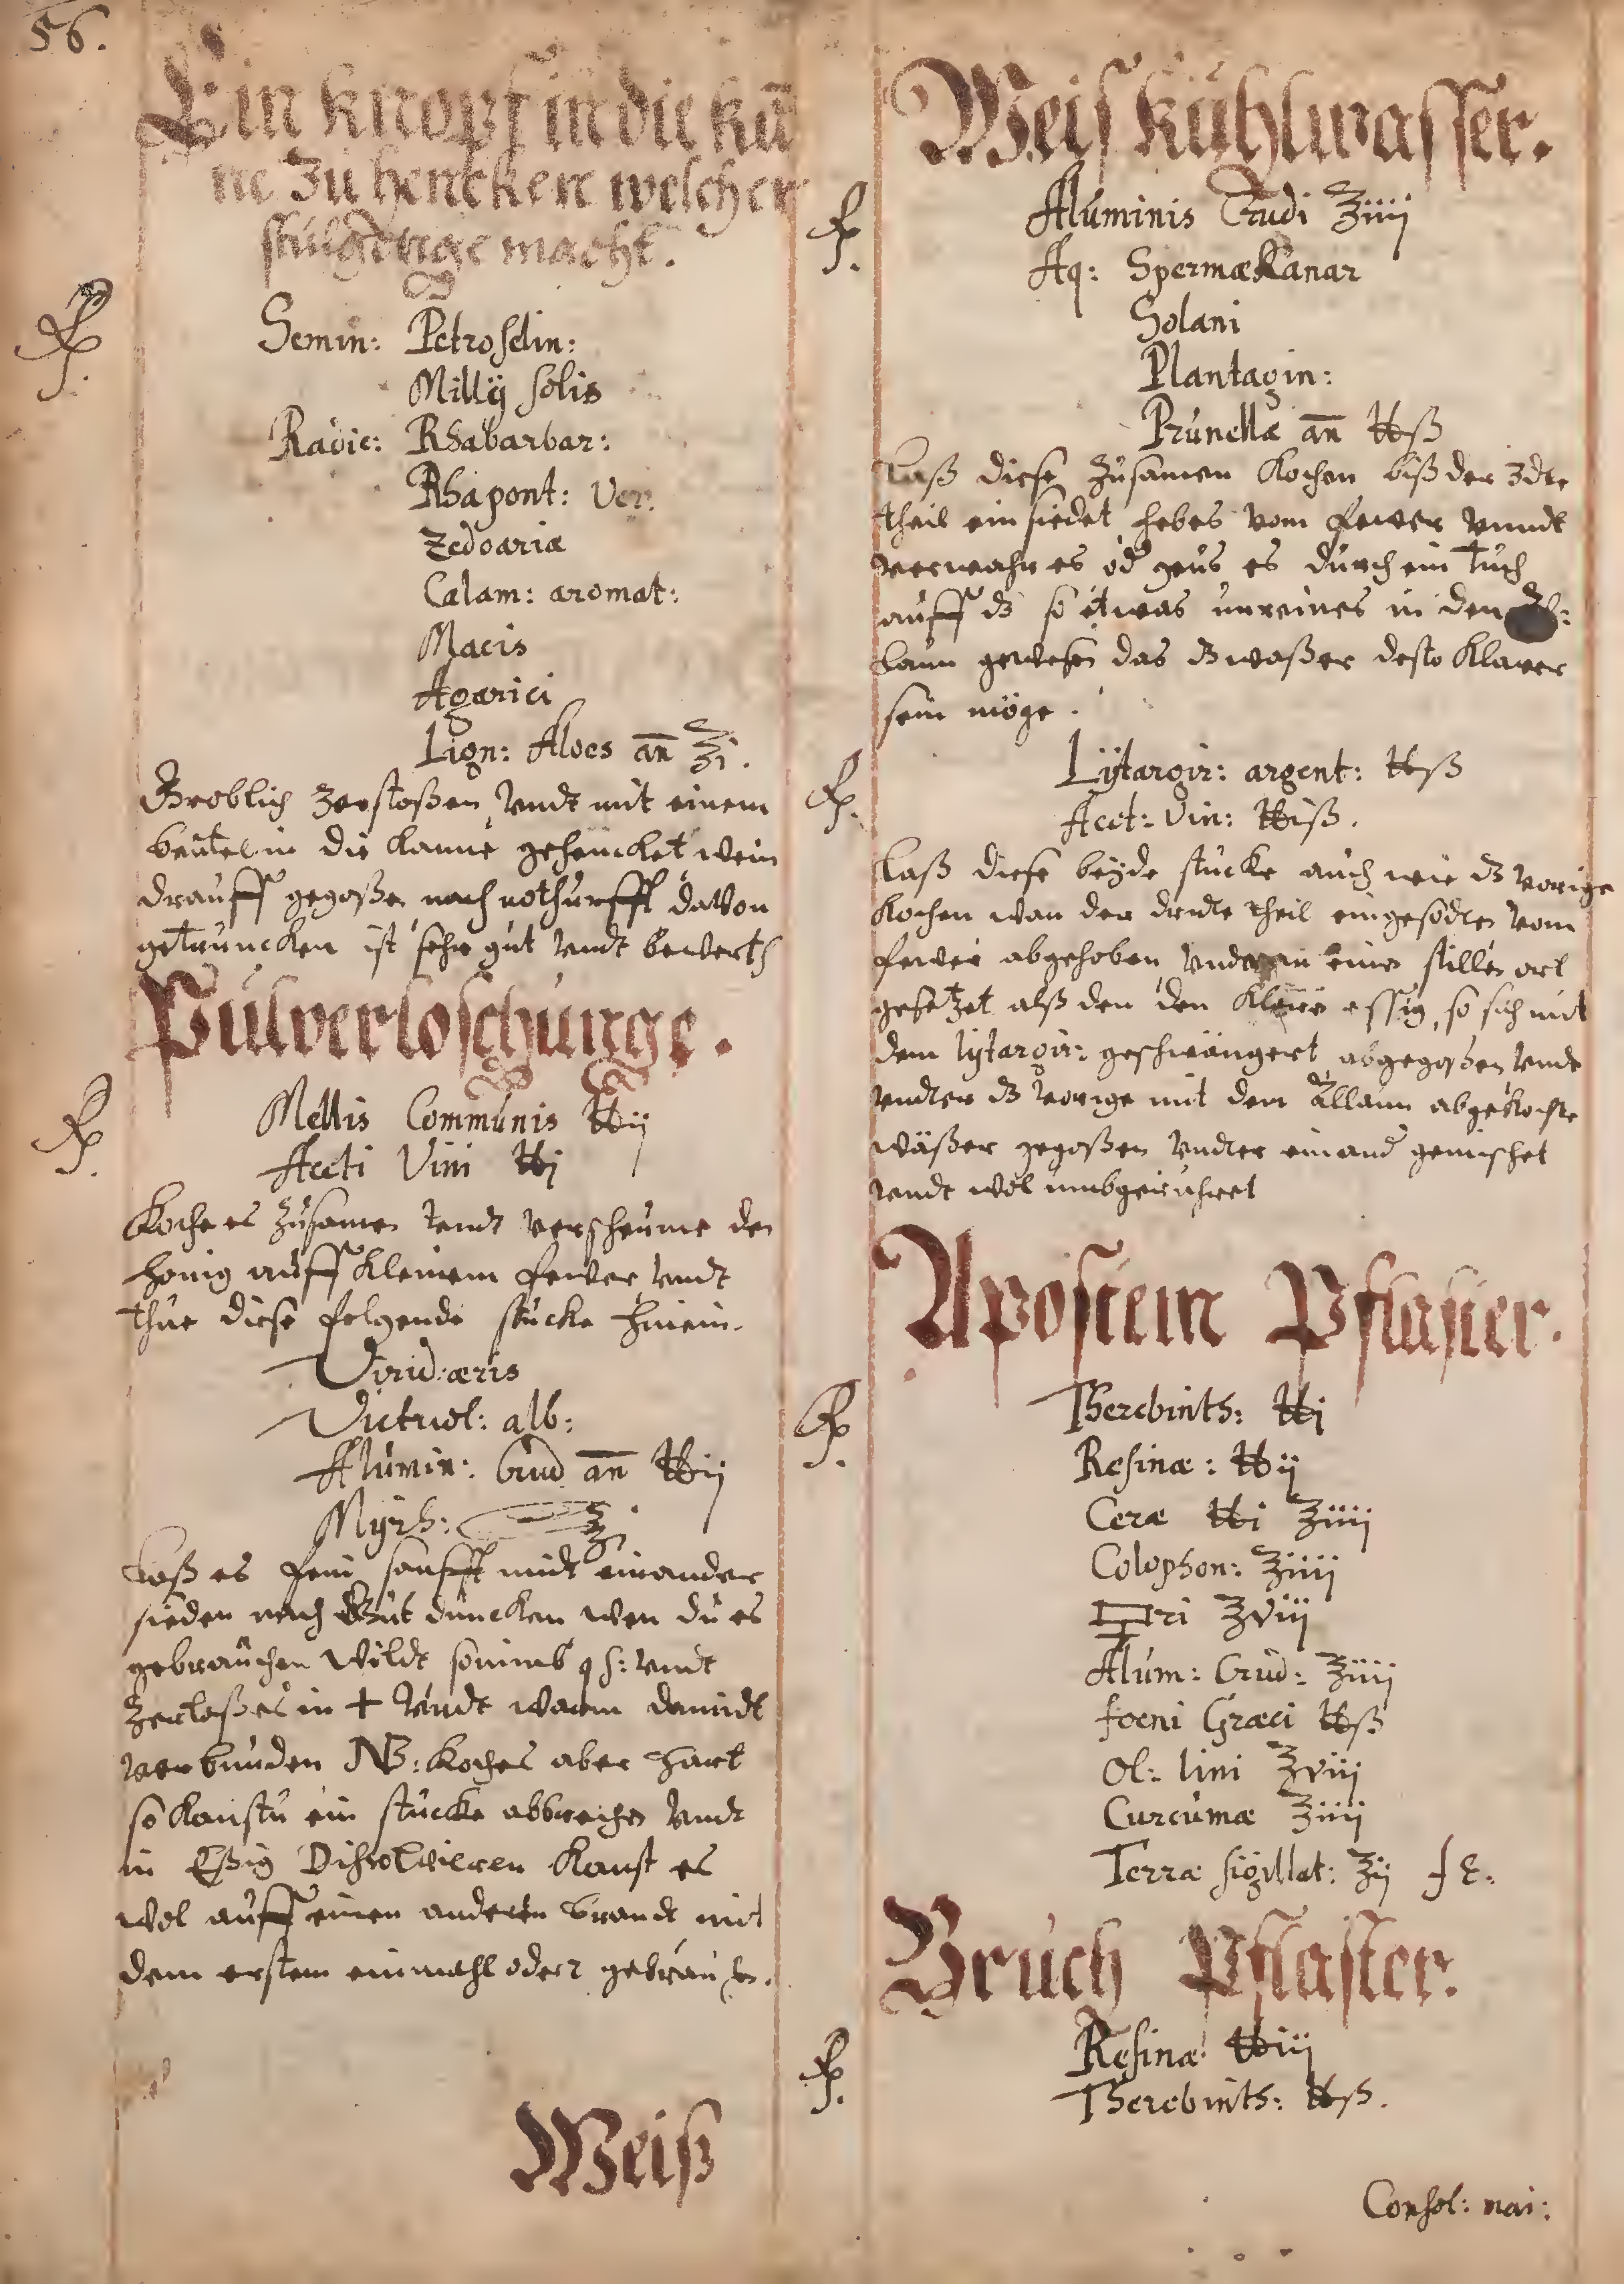 56.
Ein knopf in die kā
ne zu hencken welcher
stulgenge macht.
℞.
Semin: Petroselin:
Millij solis
Radic: Rhabarbar:
Rhapont: Ver:
Zedoariæ
Calam: aromat:
Macis
Agarici
Lign: Aloes añ ℥i.
Groblich zerstoßen, vndt mit einem
beutel in die kanne gehencket wein
drauff gegoßen nach nothurfft davon
getruncken ist sehr gut vndt bewerth
Pulverloschunge.
℞.
Mellis Communis ℔ij
Aceti Vini ℔j
Koche es zusamen vndt verscheume den
honig auff kleinem fewer vndt
thue diese folgende stucke hinein.
Virid: æris
Victriol: alb:
Alumin: Crud añ ℔ij
Myrh: ℥j
Laß es fein sanfft midt einander
sieden nach gut duncken wen du es
gebrauchen wildt so nimb q s: vndt
zerlaß es in + vndt warm damidt
verbunden NB: koches aber hart
so kanstu ein stucke abbrechen vndt
in Eßig Dissolvieren kanst es
wol auff einen anderen brandt mit
dem erstem einmahl oder 2 gebrauchen.
Weiß
Weis kuhlwasser.
℞.
Aluminis Crudi ℥iiij
Aq: Spermækanar
Solani
Plantagin:
Prunellæ añ ℔ß
Laß diese zusamen kochen biß der 3dte
theil ein siedet hebes vom fewer vnndt
verwahr es od geus es durch ein tuch
auff dz so etwas unreines in den Al:
laun gewesen das dz waßer desto klarer
sein möge.
℞.
Lijtargir: argent: ℔ß
Acet: Vin: ℔iß.
Laß diese beyde stucke auch wie dz vorige
kochen wan der dridte theil eingesodten vom
fewer abgehoben vnd an einen stillen ort
gesetzet alß den den klaren essig, so sich mit
dem lijtargir: geschwängert abgegoßen vndt
vndter dz vorige mit dem Allaun abgekochte
wäßer gegoßen vndter einand gemischet
vndt wol umbgeruhret
Apostem Pflaster.
℞.
Therebinth: ℔j
Resinæ: ℔ij
Ceræ ℔i ℥iiij
Colophon: ℥iiij
ri ℥viij
Alum: Crud: ℥iiij
foeni Græci ℔ß
Ol: lini ℥viij
Curcumæ ℥iiij
Terræ sigillat: ℥ij f E.
Bruch Pflaster.
℞.
Resinæ: ℔iij
Therebinth: ℔ß.
Consol: mai: